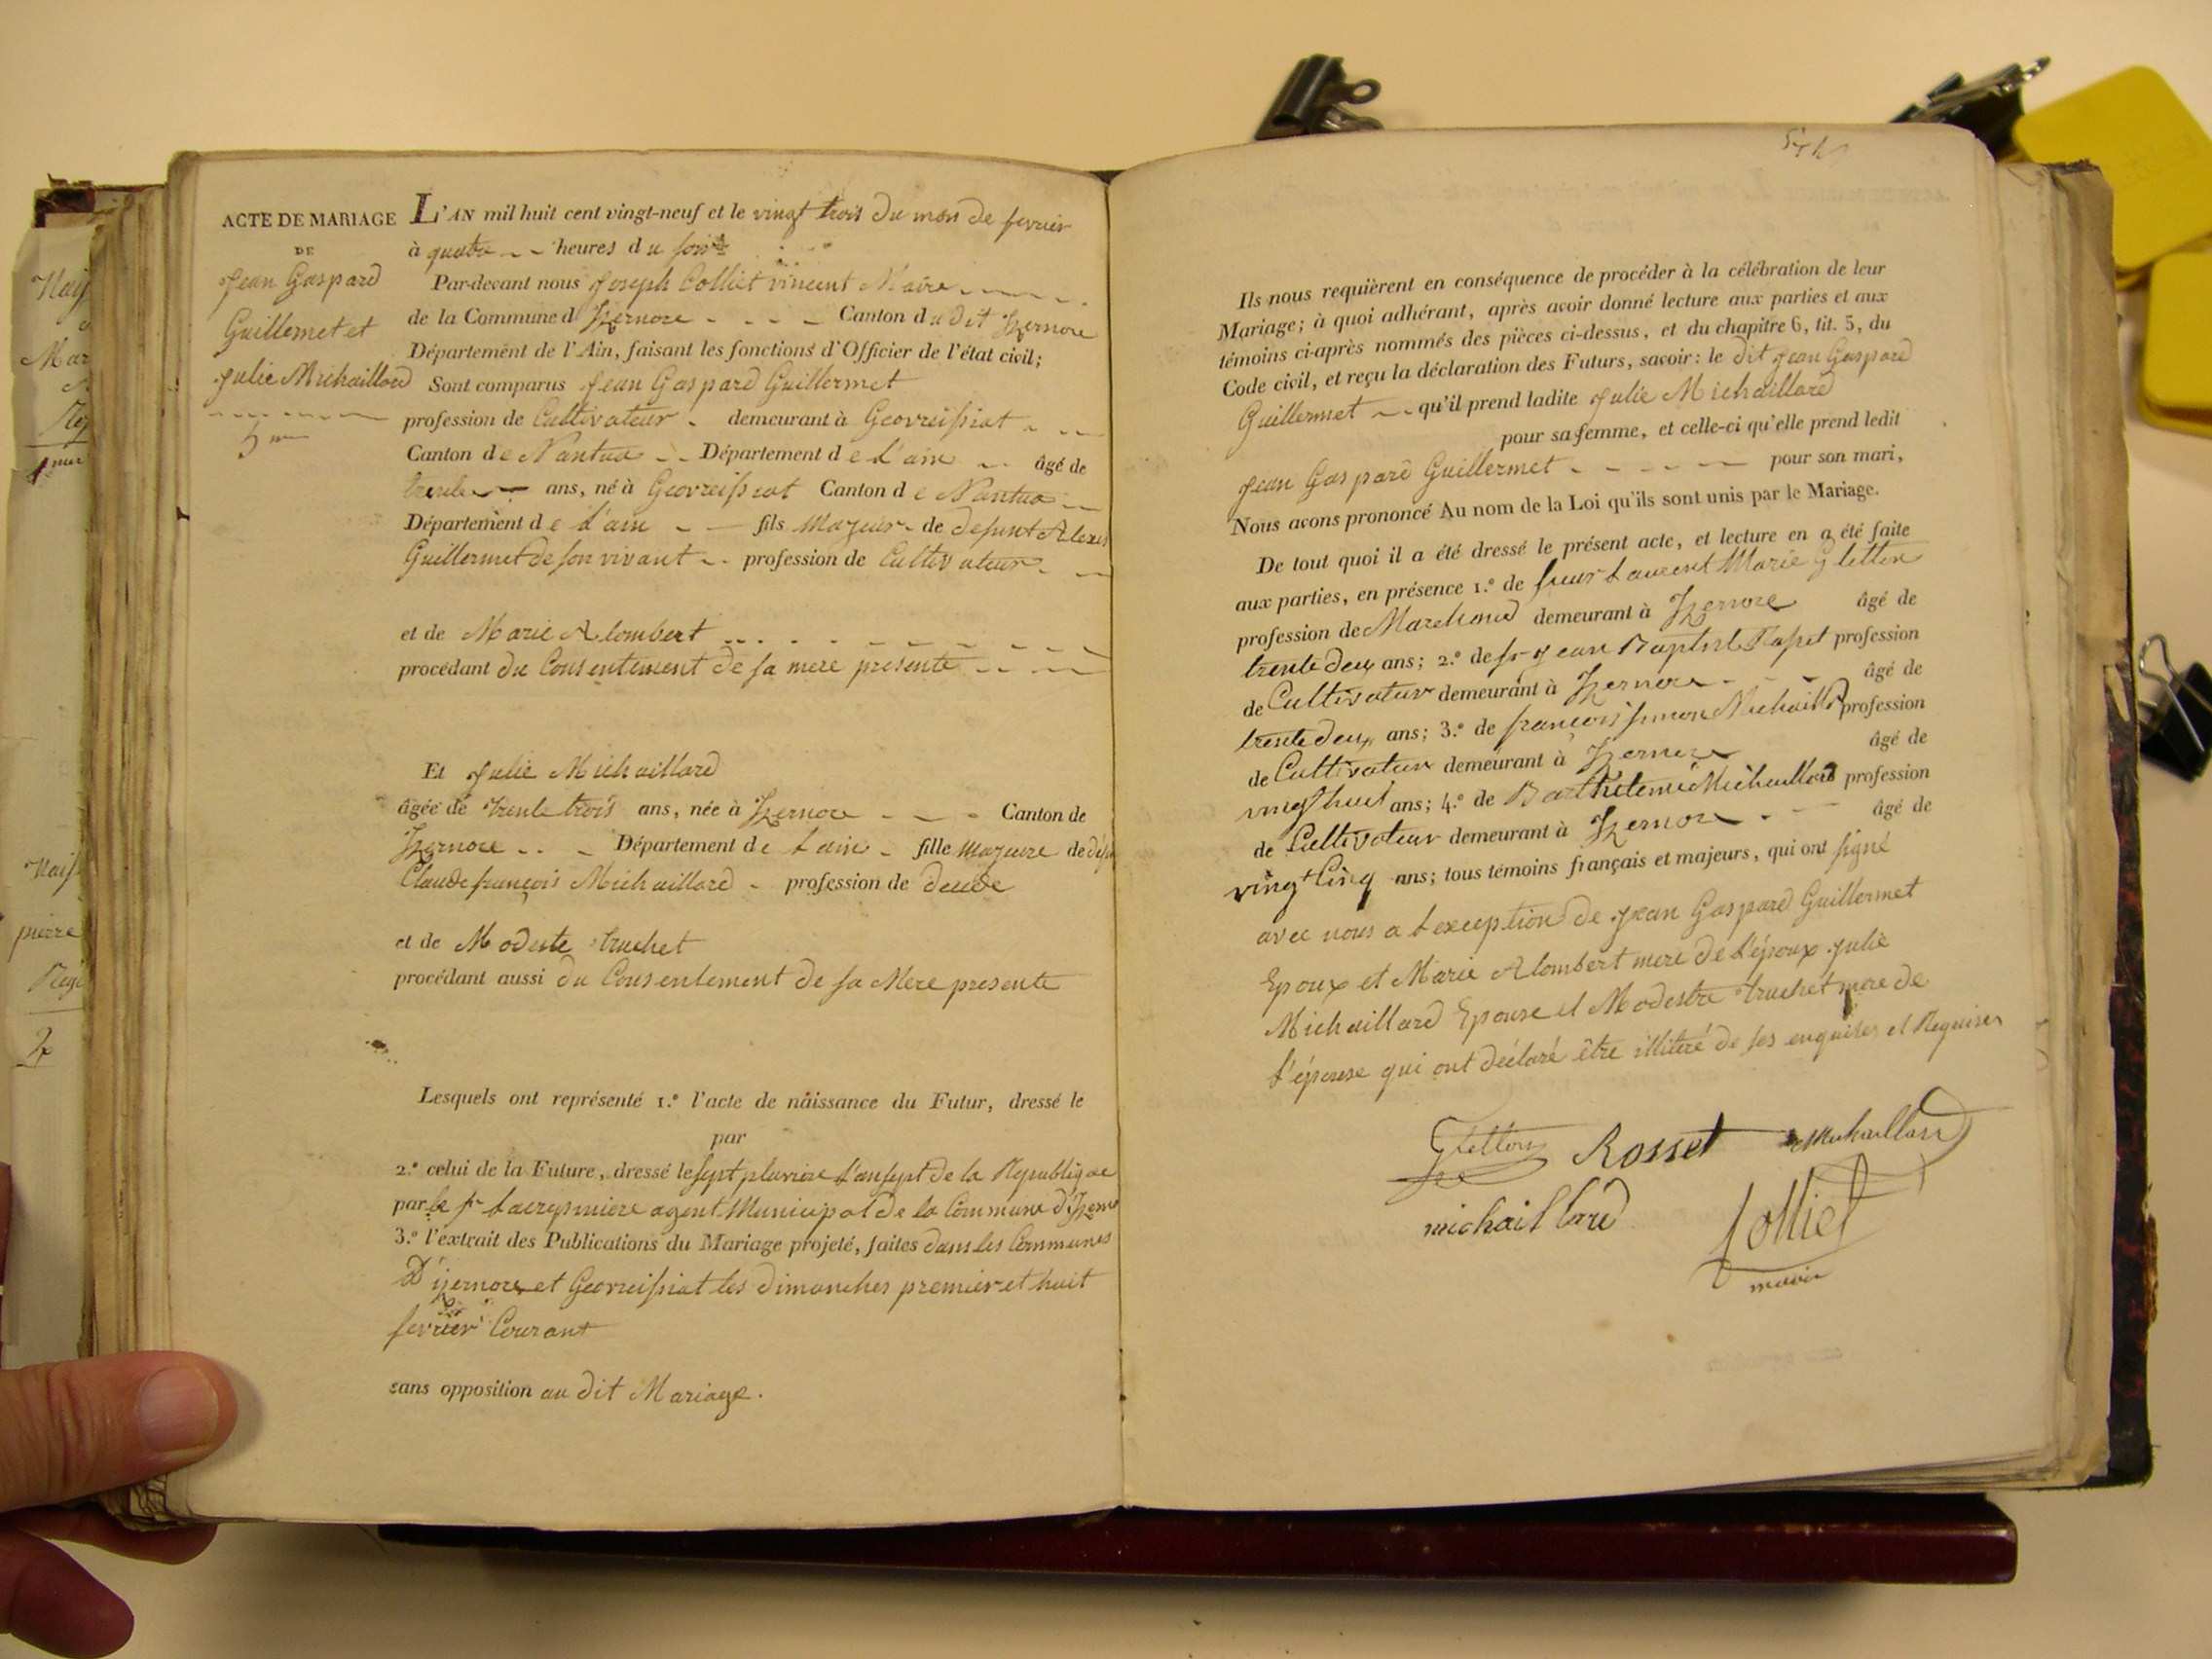 ACTE DE MARIAGE
DE
Jean Gaspard
Guillermet et
Julie Michaillard
5me
L'AN mil huit cent vingt-neuf et le vingt trois du mois de fevrier
à quatre heures du soir
Par-devant nous Joseph Colliet vincent Maire
de la Commune d'Izernore Canton du dit Izernore
Département de l'Ain, faisant les fonctions d'Officier de l'état civil;
Sont comparus Jean Gaspard Guillermet
profession de Cultivateur demeurant à Geovreissiat
Canton de Nantua Département de l'ain âgé de
trente ans, né à Geovreissiat Canton de Nantua
Département de l'ain fils Majeur de defunt Alexis
Guillermet de son vivant profession de Cultivateur
et de Marie Alombert
procédant du Consentement de sa mere presente
Et Julie Michaillard
âgée de trente trois ans, née à Izernore Canton de
Izernore Département de l'ain fille Majeure de
Claude françois Michaillard profession de
et de Modeste truchet
procédant aussi du Consentement de sa Mere presente
Lesquels ont représenté 1.º l'acte de naissance du Futur, dressé le
par
2.º celui de la Future, dressé le sept pluviose l'an sept de la Republique
par le sr agent Municipal de la Commune d'Izernore
3.º l'extrait des Publications du Mariage projeté, faites dans les Communes
D'izernore et Geovreissiat les dimanches premier et huit
fevrier Courant
sans opposition au dit Mariage.
Ils nous requièrent en conséquence de procéder à la célébration de leur
Mariage; à quoi adhérant, après avoir donné lecture aux parties et aux
témoins ci-après nommés des pièces ci-dessus, et du chapitre 6, tit. 5, du
Code civil, et reçu la déclaration des Futurs, savoir: le dit Jean Gaspard
Guillermet qu'il prend ladite Julie Michaillard
pour sa femme, et celle-ci qu'elle prend ledit
Jean Gaspard Guillermet pour son mari,
Nous avons prononcé Au nom de la Loi qu'ils sont unis par le Mariage.
De tout quoi il a été dressé le présent acte, et lecture en a été faite
aux parties, en présence 1.º de sieur Laurent Marie Gletton
profession de Marchand demeurant à Izernore âgé de
trente deux ans; 2.º de sr Jean Baptist Rosset profession
de Cultivateur demeurant à Izernore âgé de
trente deux ans; 3.º de françois simon Michaillard profession
de Cultivateur demeurant à Izernore âgé de
vingt huit ans; 4.º de Barthelemie Michaillard profession
de Cultivateur demeurant à Izernore âgé de
vingt Cinq ans; tous témoins français et majeurs, qui ont signé
avec nous a l'exception de Jean Gaspard Guillermet
Epoux et Marie Alombert mere de l'époux Julie
Michaillard Epouse et Modestre truchet mere de
l'épouse qui ont déclaré être illiteré de ses enquises et Requises
Gletton Rosset Michaillard
michaillard Colliet
maire